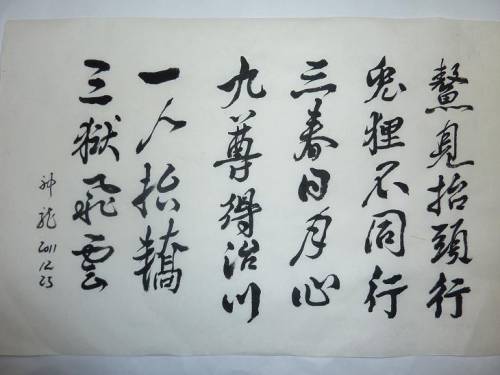 鰲見抬頭行
兔狸不同行
三春日月心
九尊得治川
一人抬轎
三獄飛雲
神龍 2011.12.25